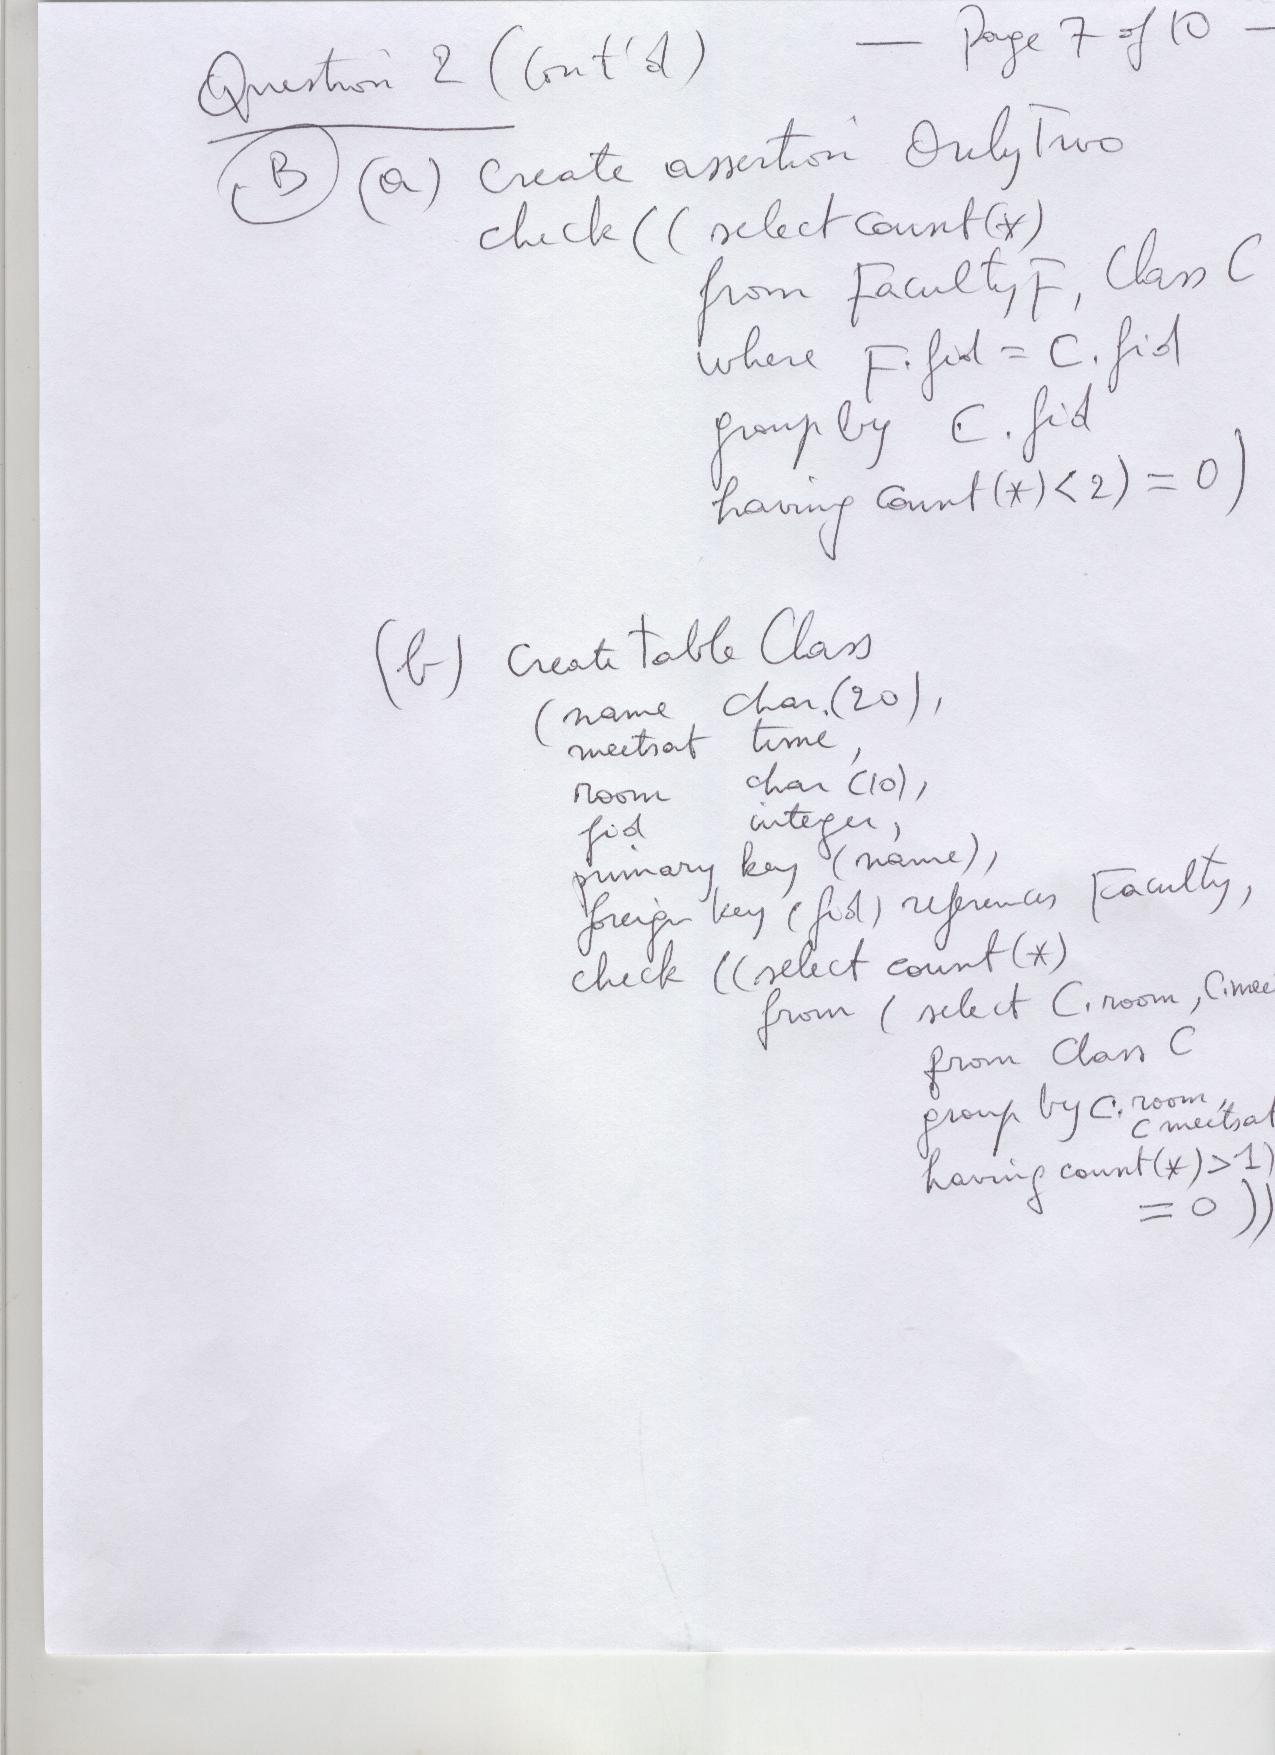 — Page 7 of 10 —
Question 2 (Cont'd)
B (a) Create assertion OnlyTwo
check (( select count(*)
from Faculty F, Class C
where F.fid = C.fid
group by C.fid
having count(*) < 2) = 0)
(b) Create Table Class
(name char(20),
meetsat time,
room char (10),
fid integer,
primary key (name),
foreign key (fid) references Faculty,
check ((select count(*)
from ( select C.room, C.mee
from Class C
group by C.room,
C meetsat
having count(*) > 1)
= 0 ))